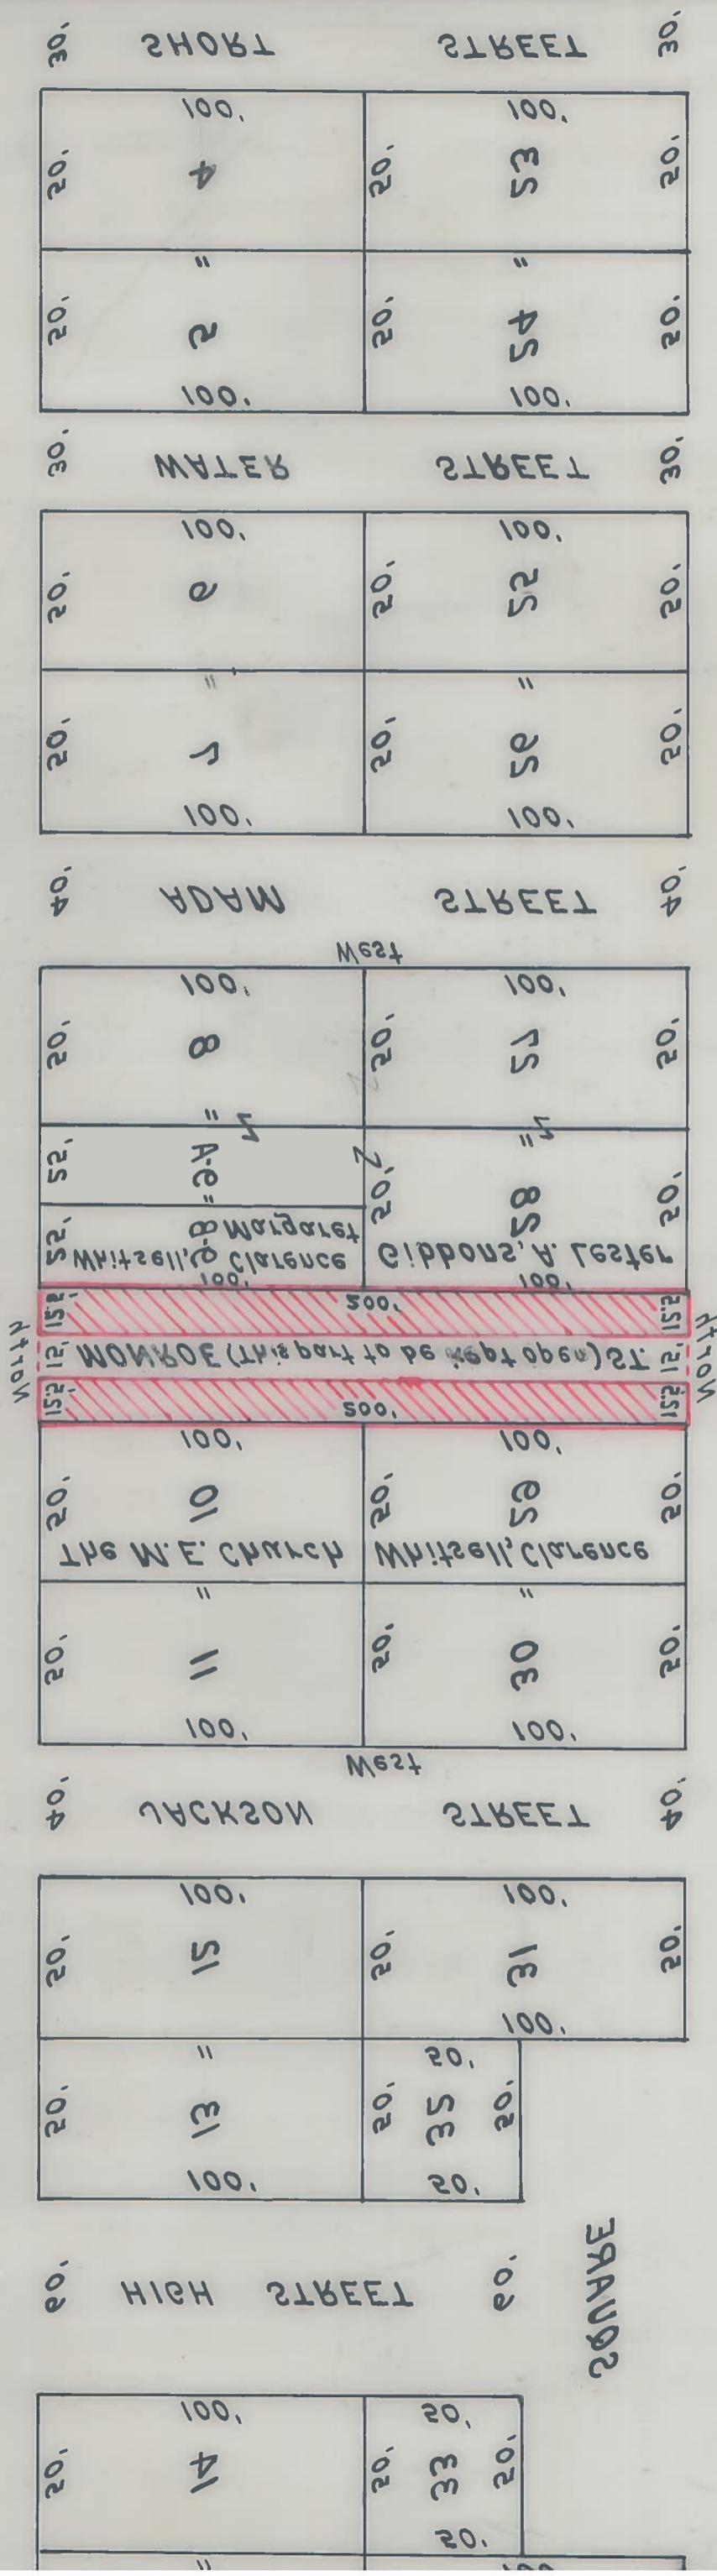 30' SHORT STREET 30'
100' 100'
50' 4 50' 23 50'
" "
50' 5 50' 24 50'
100' 100'
30' WATER STREET 30'
100' 100'
50' 6 50' 25 50'
" "
50' 7 50' 26 50'
100' 100'
40' ADAM STREET 40'
West
100' 100'
50' 8 50' 27 50'
" "
25' 9-A 50' 28 50'
"
Margaret
25' Whitsell, 9-B Clarence Gibbons, A. Lester
100' 100'
12.5' 200' 12.5'
North 15' MONROE (This part to be kept open) ST. 15' North
12.5' 200' 12.5'
100' 100'
50' 10 50' 29 50'
The M.E. Church Whitsell, Clarence
" "
50' 11 50' 30 50'
100' 100'
West
40' JACKSON STREET 40'
100' 100'
50' 12 50' 31 50'
100'
" 50'
50' 13 50' 32 50'
100' 50'
60' HIGH STREET 60'
SQUARE
100' 50'
50' 14 50' 33 50'
50'
"